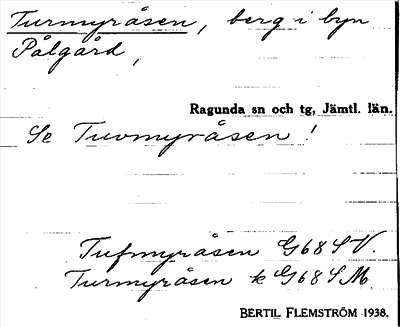 Turmyråsen, berg i byn
Pålgård,
Ragunda sn och tg, Jämtl. län.
Se Tuvmyråsen!
Tufmyråsen G68SV.
Turmyråsen k G68SM.
BERTIL FLEMSTRÖM 1938.